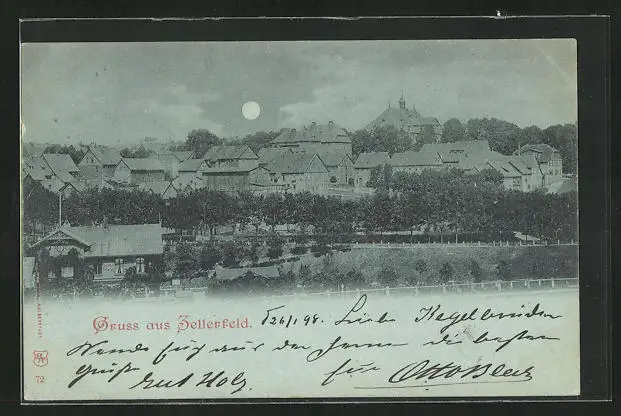 Gruss aus Zellerfeld.
26/1 98. Liebe Kegelbrüder
Sende Euch aus der Ferne die besten
Grüße Gut Holz für Otto Bleck
72